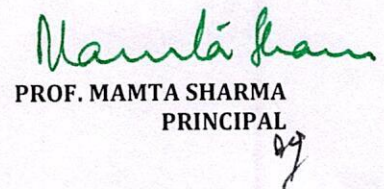 Mamta Sharma
PROF. MAMTA SHARMA
PRINCIPAL